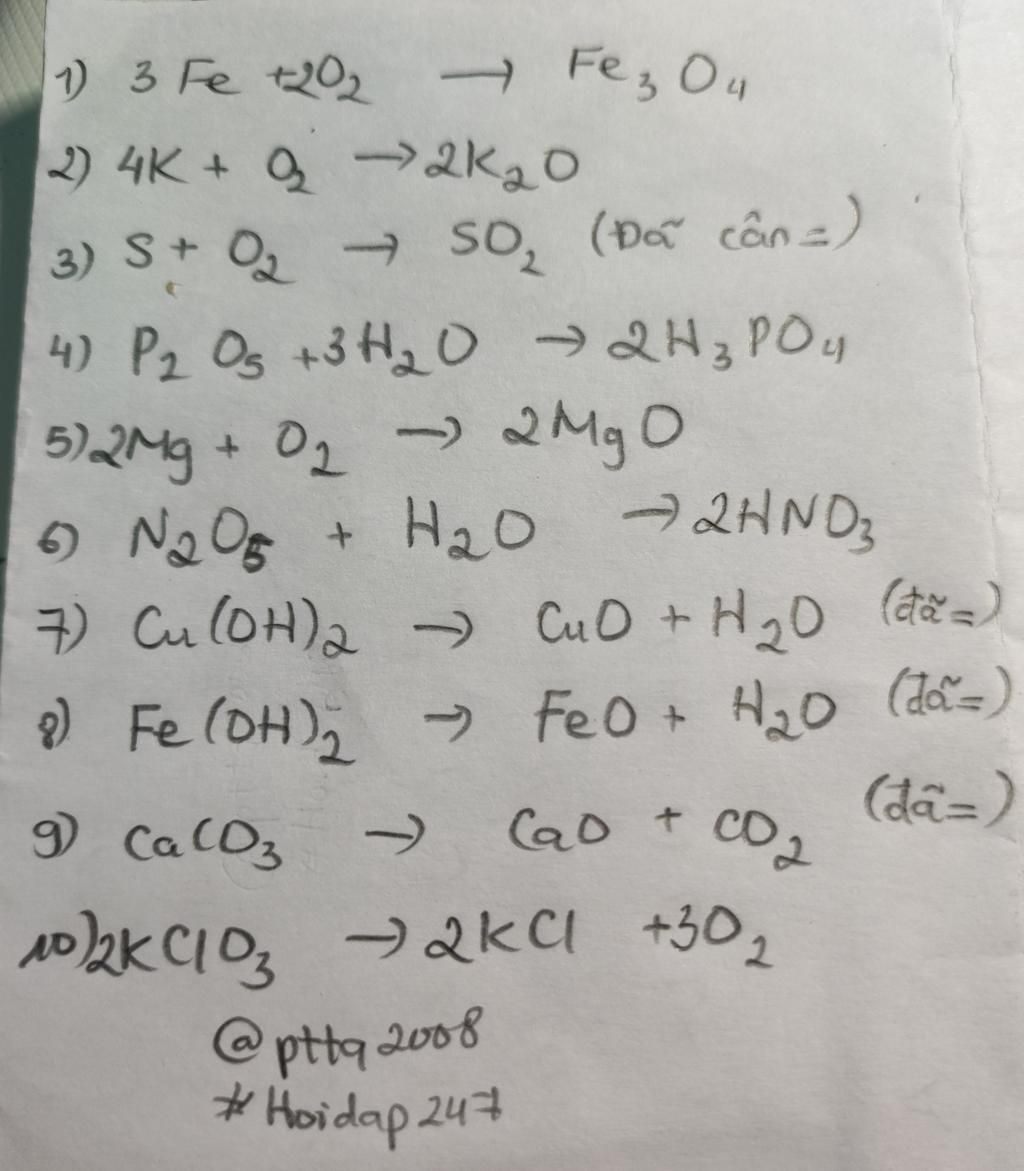 1) 3 Fe + 2O₂ → Fe₃O₄
2) 4K + O₂ → 2K₂O
3) S + O₂ → SO₂ (Đã cân =)
4) P₂O₅ + 3H₂O → 2H₃PO₄
5) 2Mg + O₂ → 2MgO
6) N₂O₅ + H₂O → 2HNO₃
7) Cu(OH)₂ → CuO + H₂O (đã =)
8) Fe(OH)₂ → FeO + H₂O (đã =)
9) CaCO₃ → CaO + CO₂ (đã =)
10) 2KClO₃ → 2KCl + 3O₂
@pttq2008
#Hoidap247